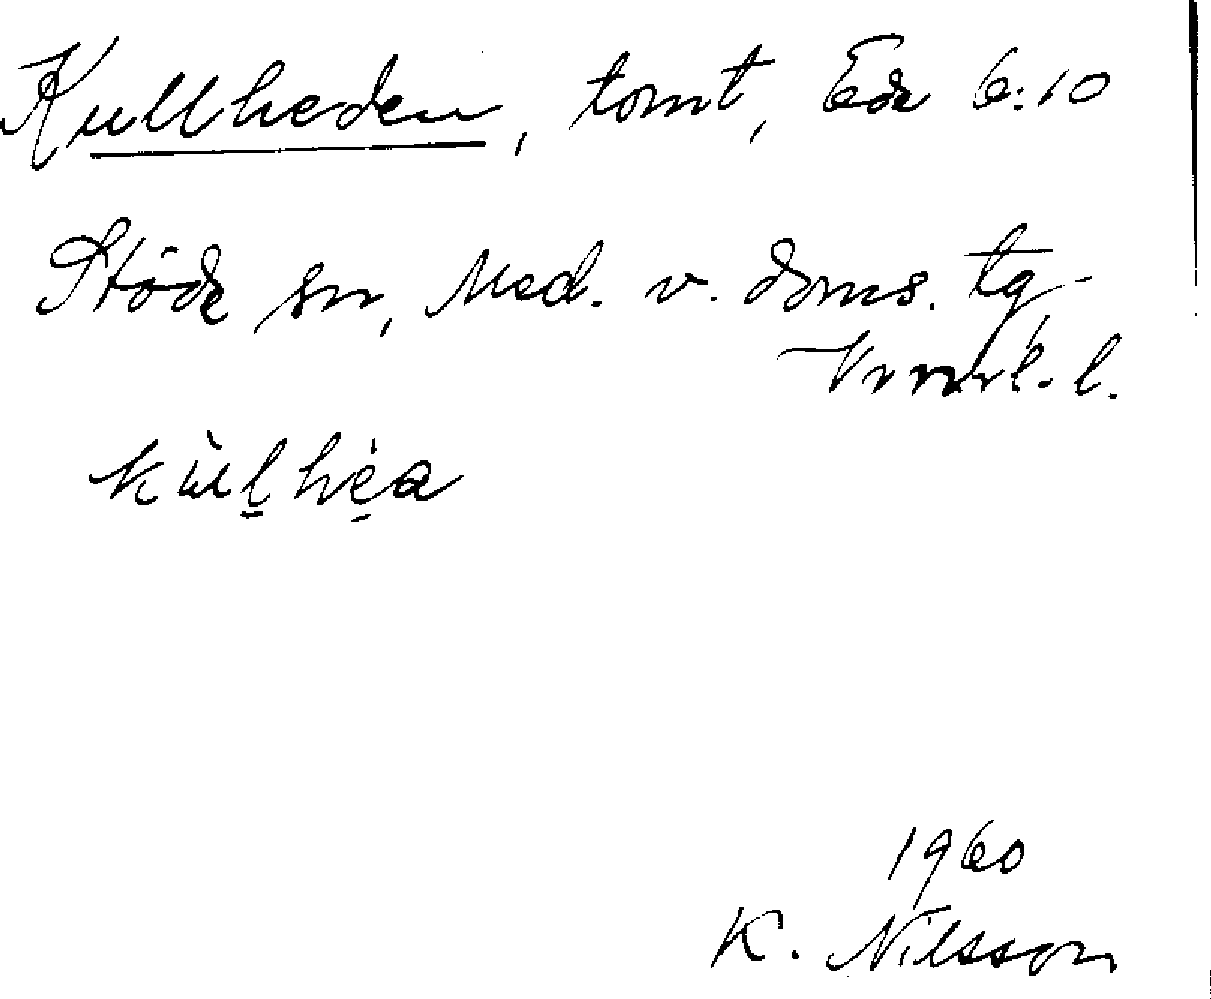 Kullheden, tomt, Ede 6:10
Stöde sn, Med. v. doms. tg.
Vnorrl. l.
kùl̲hè̱a
1960
K. Nilsson